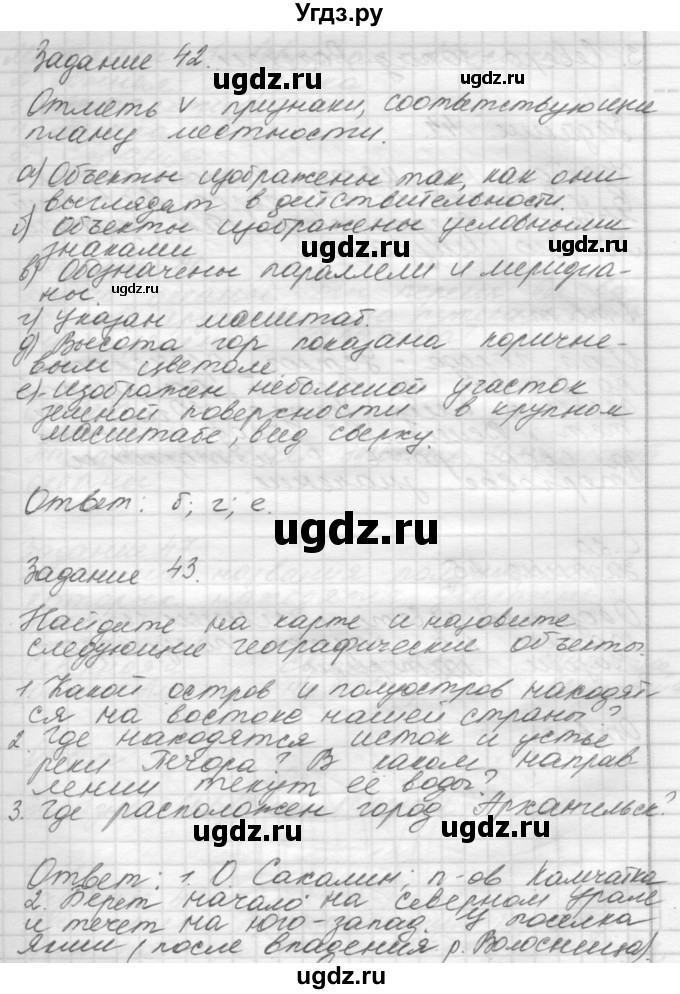 Угдз.ру
Задание 42.
ugdz.ru
Отметь v признаки, соответствующие
плану местности.
ugdz.ru
а) Объекты изображены так, как они
выглядят в действительности.
б) Объекты изображены условными
знаками
ugdz.ru
в) Обозначены параллели и меридиа-
ны.
ugdz.ru
г) Указан масштаб.
д) Высота гор показана коричне-
вым цветом.
ugdz.ru
е) Изображен небольшой участок
земной поверхности в крупном
масштабе, вид сверху.
ugdz.ru
Ответ: б; г; е.
ugdz.ru
Задание 43.
Найдите на карте и назовите
следующие географические объекты.
ugdz.ru
1. Какой остров и полуостров находят-
ся на востоке нашей страны?
2. Где находятся исток и устье
реки Печора? В каком направ
лении текут ее воды?
3. Где расположен город Архангельск?
ugdz.ru
ugdz.ru
Ответ: 1. О. Сакалин; п-ов Камчатка
2. Берет начало на северном Урале
и течет на юго-запад. У поселка
Якши (после впадения р. Волосница).
ugdz.ru
ugdz.ru